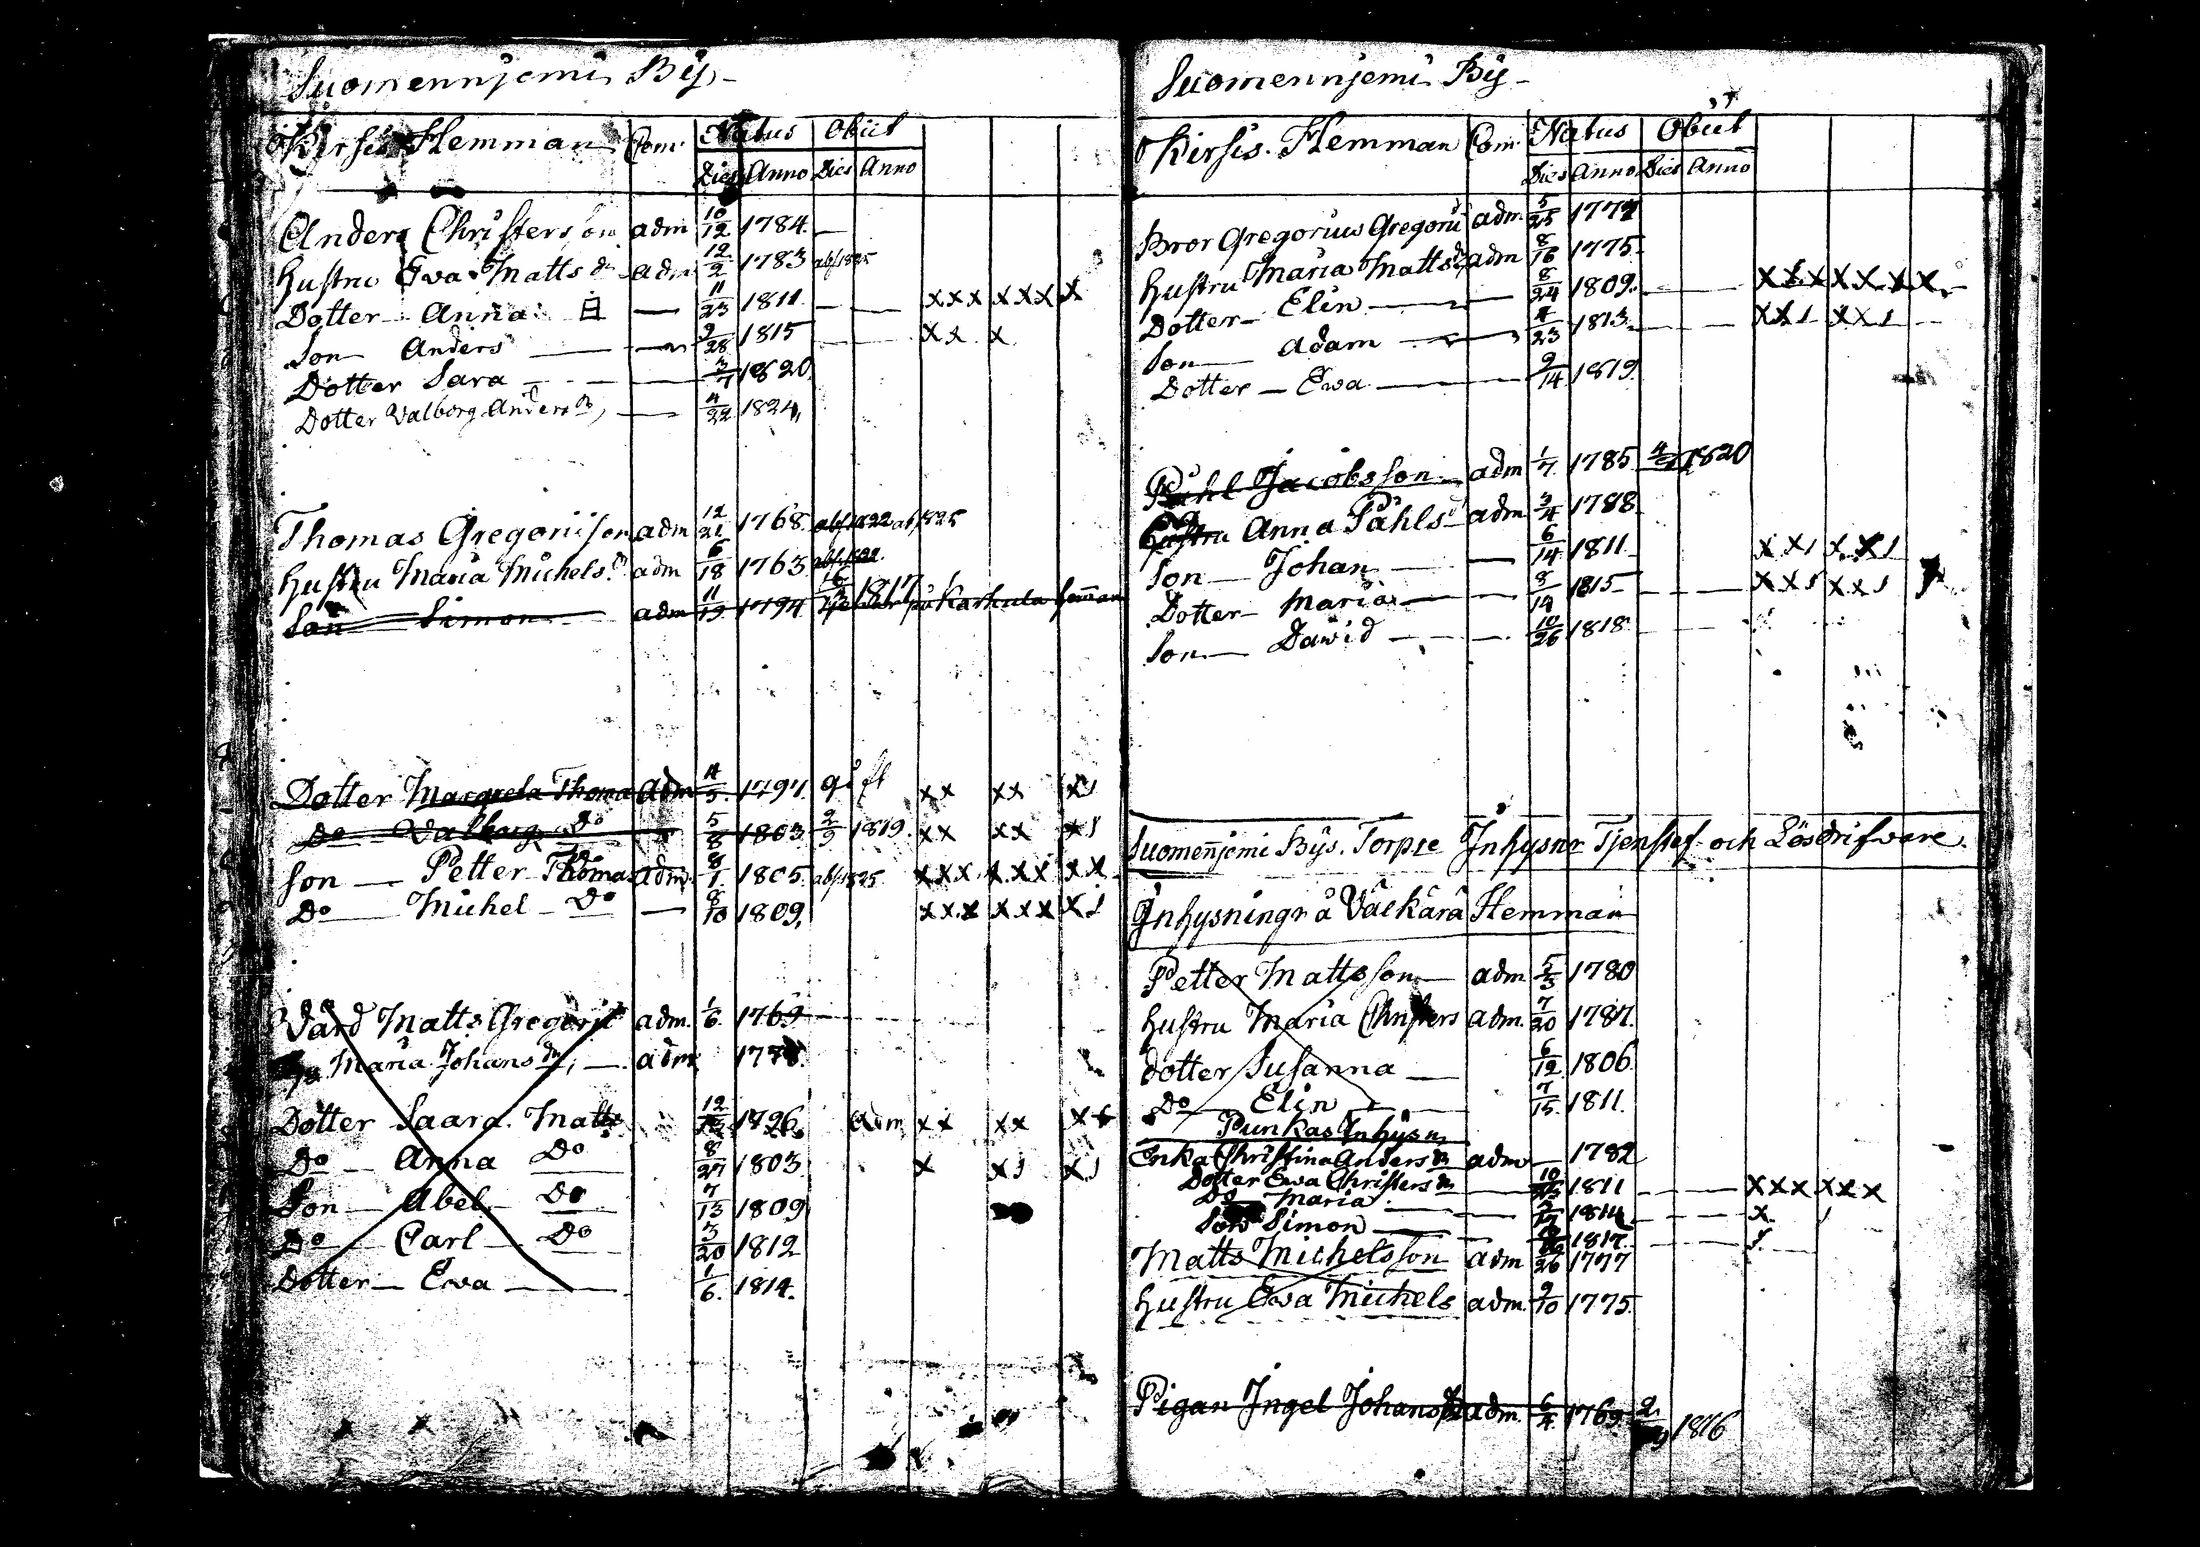 Suomennjemi Bÿ
Kirsis Hemman Com. Natus Obiit
Dies Anno Dies Anno
Anders Christersson adm 10/12 1784.
hustru Ewa Matts dr adm 12/2 1783 abs. 1825
Dotter Anna 11/23 1811 xxx xxx x
Son Anders 2/28 1815 xx x
Dotter Sara 3/7 1820
Dotter Walborg Anders dr 4/22 1824
Thomas Gregoriison adm 12/21 1768 abs. 1822 abs. 1825
hustru Maria Michels dr adm 6/18 1763 abs. 1822
Son Simon adm 11/19 1794 1817 på Karhula Hemman
Dotter Margreta Thoma adm 4/5 1797 gift xx xx x1
Do Walborg Do 5/8 1803 2/9 1819 xx xx x1
Son Petter Thomas adm. 8/1 1805 abs. 1825 xxx xxx xx
Do Michel Do 8/10 1809. xxx xxx x1
Matts Gregorii adm. 1/6 1769
Maria Johans dr adm
Dotter Saara Matts 12 adm xx xx
Do Anna Do 8/27 1803 x x1 x1
Son Abel Do 7/13 1809
Do Carl Do 3/20 1812
Dotter Ewa 1/6 1814.
Suomennjemi Bÿ
Kirsis Hemman Com. Natus Obiit
Dies Anno Dies Anno
Bror Gregorius Gregorii adm. 5/25
hustru Maria Matts dr adm 8/16 1775.
Dotter Elin 8/24 1809. xxx xxx x
Son Adam 4/23 1813 xx1 xx1
Dotter Ewa 2/14 1819.
Påhl Jacobsson adm 1/7 1785 1820
hustru Anna Påhls dr adm 3/4 1788
Son Johan 6/14 1811 xx1 xx1
Dotter Maria 8/14 1815 xx1 xx1
Son Dawid 10/26 1818
Suomennjemi Bÿs. Torpse Inhysnr Tjenstef. och Lösdrifvare.
Inhysningr å Väckärä Hemman
Petter Mattsson adm. 5/3 1780
hustru Maria Christers adm. 7/20 1787.
dotter Susanna 6/12 1806
Do Elin 7/15 1811.
Punkas Inhysn
Enka Christina Anders dr adm 1782
Dotter Ewa Christers dr 1811 xxx xxx
Do Maria 1814 x
Son Simon 1817 1
Matts Michelsson adm 1777
hustru Ewa Michels adm. 9/10 1775.
Pigan Ingel Johans dr adm. 6/4 1769 1816